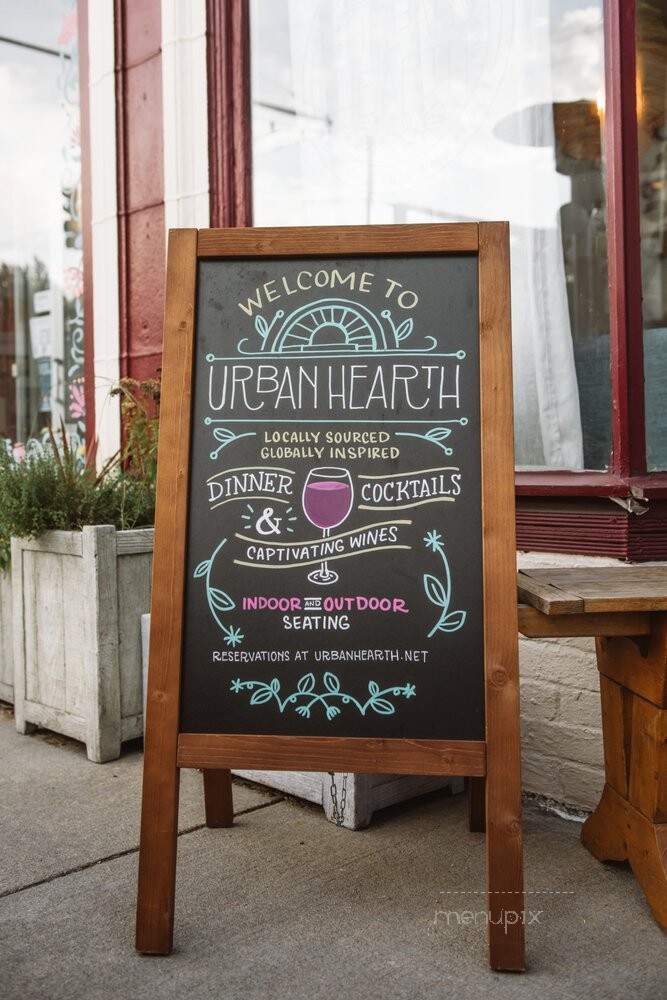 WELCOME TO
URBAN HEARTH
LOCALLY SOURCED
GLOBALLY INSPIRED
DINNER
& COCKTAILS
CAPTIVATING WINES
INDOOR AND OUTDOOR
SEATING
RESERVATIONS AT URBANHEARTH.NET
menupix